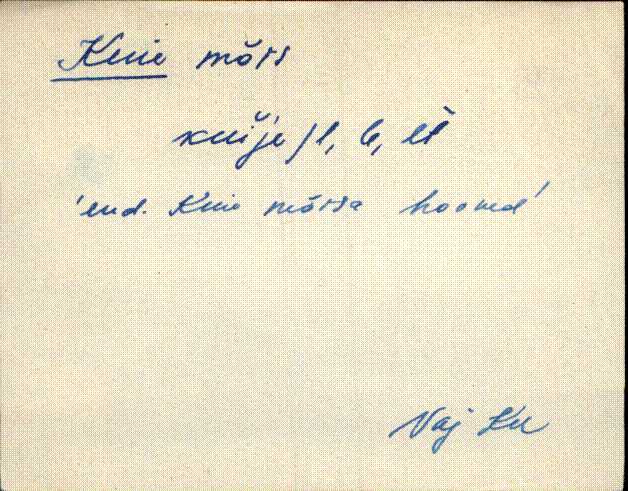 Kuie mõis
kuije /l, le, lt
'end. Kuie mõisa hooned'
Vaj Ku